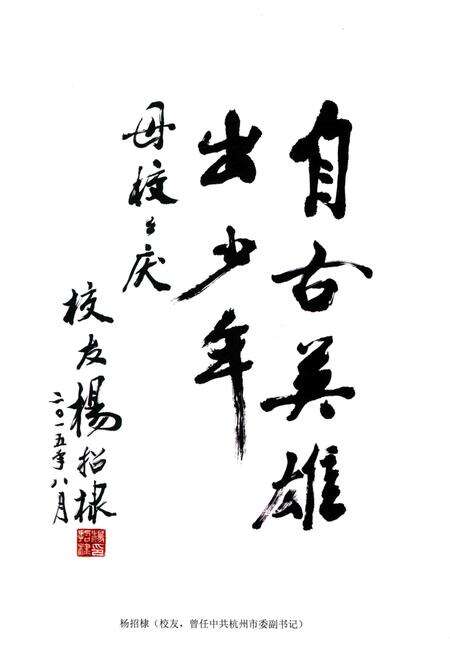 自古英雄
出少年
母校校庆
校友杨招棣
二〇一五年八月
杨招棣（校友，曾任中共杭州市委副书记）